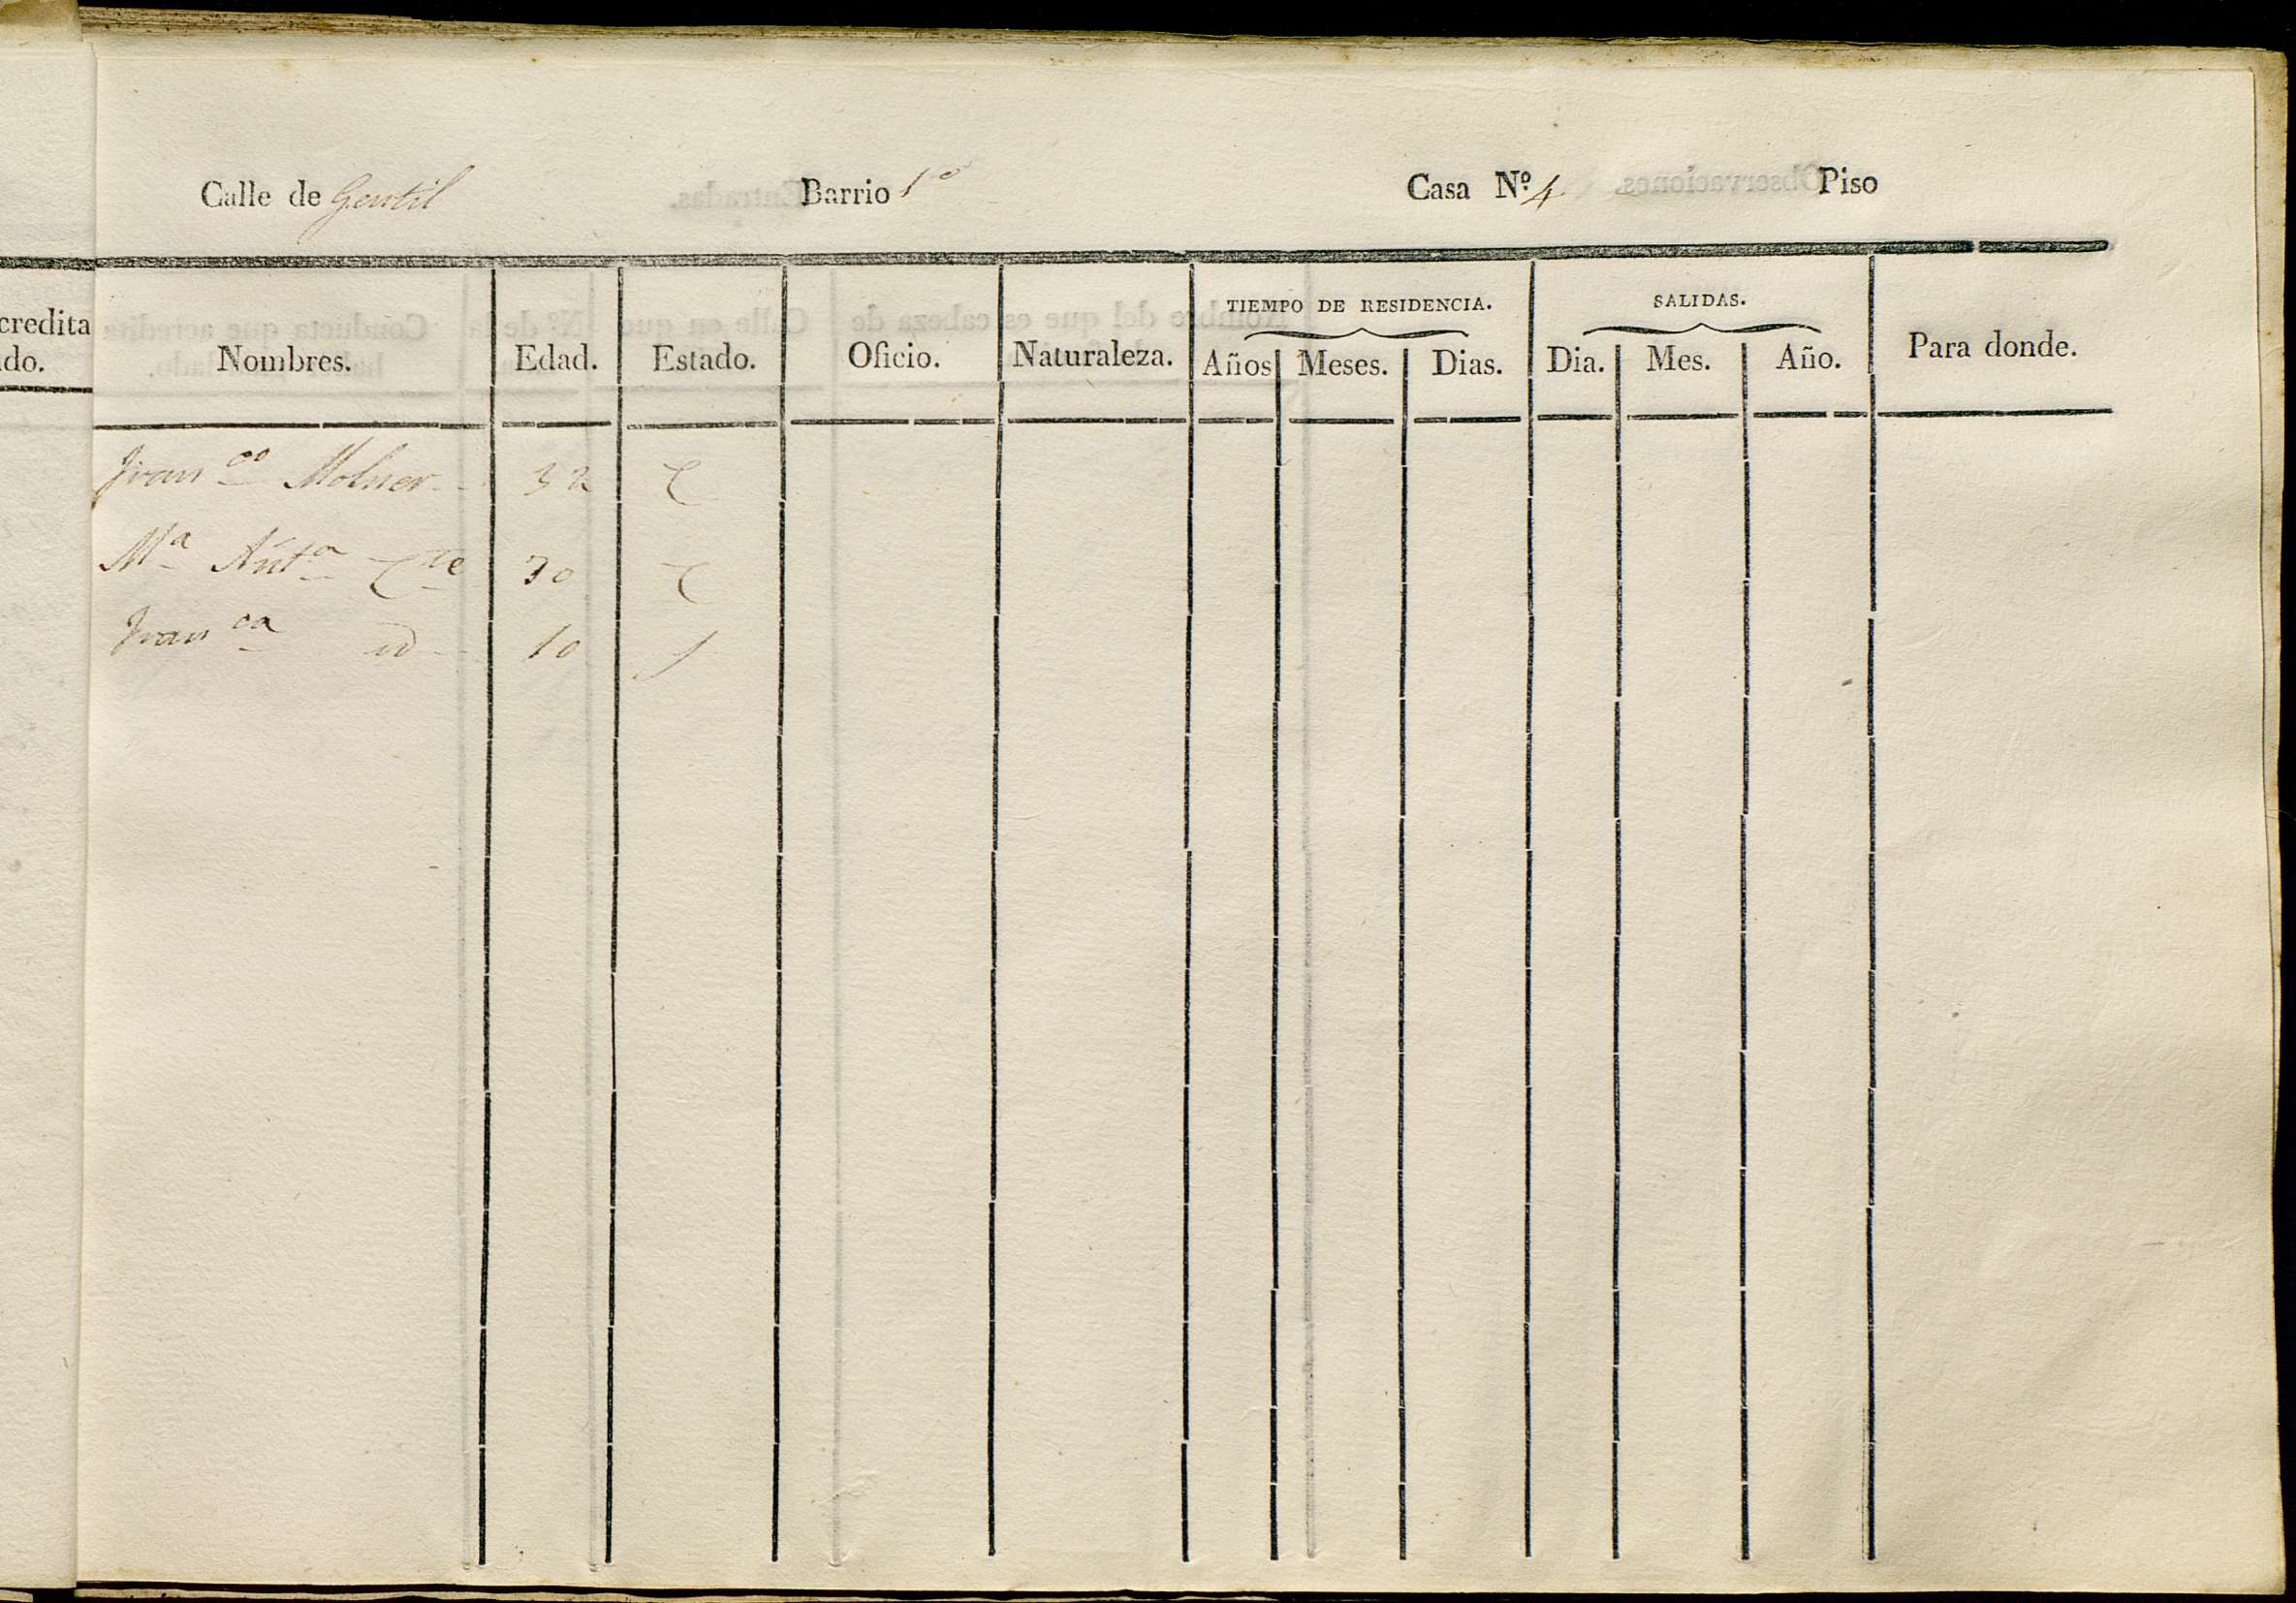 Calle de Gentil Barrio 1º Casa Nº 4 Piso
credita
do.
TIEMPO DE RESIDENCIA. SALIDAS.
Nombres. Edad. Estado. Oficio. Naturaleza. Años Meses. Dias. Dia. Mes. Año. Para donde.
Fran.co Molner 32 C
Mª Antª 30 C
Fran.ca id 10 S